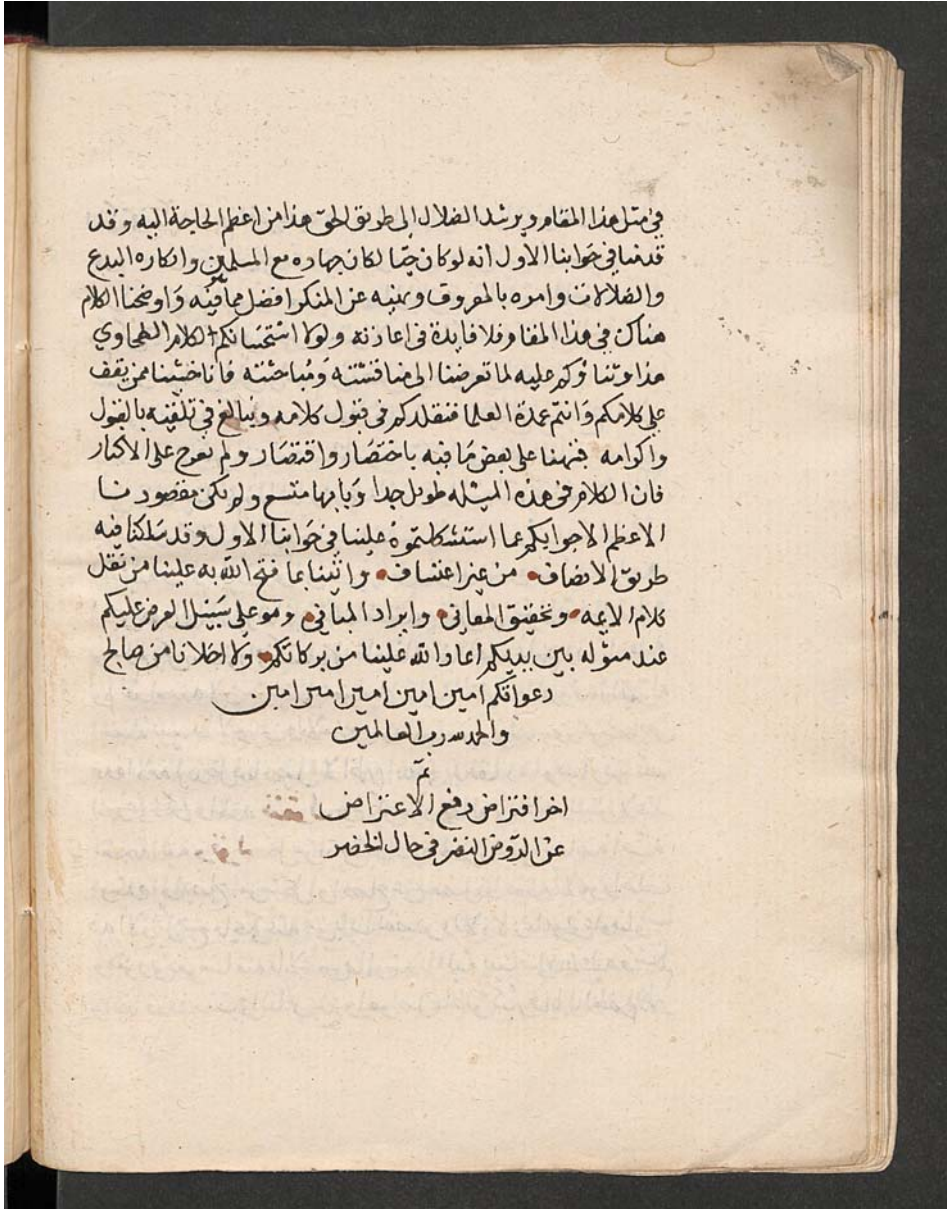 في مثل هذا المقام ويرشد الضلال الى طريق الحق هذا من اعظم الحاجة اليه وقد
قدمنا في جوابنا الاول انه لو كان حيا لكان جهاده مع المسلمين وانكاره البدع
والضلالات وامره بالمعروف ونهيه عن المنكر افضل مما فيه واوضحنا الكلام
هناك في هذا المقام فلا فايدة في اعادته ولولا استحسانكم لكلام الطحاوي
هذا وثناؤكم عليه لما تعرضنا الى مناقشته ومباحثته فانا خشينا ممن يقف
على كلامكم وانتم عمدة العلما فنقلدكم في قبول كلامه ويبالغ في تلقينه بالقول
واكرامه فنبهنا على بعض ما فيه باختصار واقتصار ولم نعرج على الاكثار
فان الكلام في هذه المسئله طويل جدا وبابها متسع ولم يكن مقصودنا
الاعظم الا جوابكم عما استشكلتموه علينا في جوابنا الاول وقد سلكنا فيه
طريق الانصاف من غير اعتساف واتينا بما فتح الله به علينا من نقل
كلام الايمه وتحقيق المعاني وايراد المباني وهو على سبيل العرض عليكم
عند مثوله بين يديكم اعاد الله علينا من بركاتكم ولا اخلانا من صالح
دعواتكم امين امين امين امين امين
والحمد لله رب العالمين
تم
اخر افتراض دفع الاعتراض
عن الروض النضر في حال الخضر